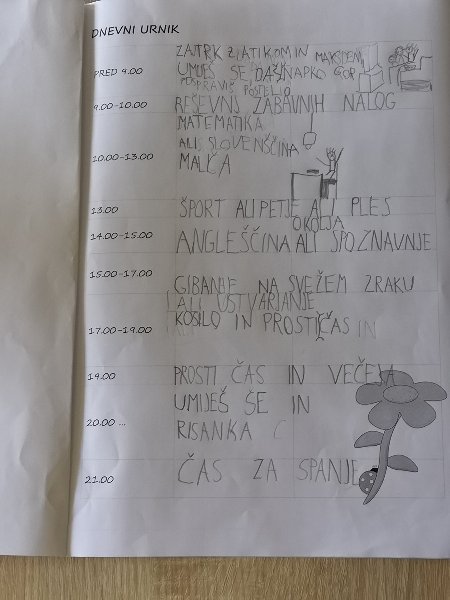 DNEVNI URNIK
ZAJTRK Z IN
PRED 9.00 UMIJEŠ SE
POSPRAVIŠ POSTELJO
9.00-10.00 REŠEVNJ ZABAVNIH NALOG
MATEMATIKA
ALI SLOVENŠČINA
10.00-13.00 MALIČA
13.00 ŠPORT ALI PETJE ALI PLES
OKOLJA
14.00-15.00 ANGLEŠČINA ALI SPOZNAVNJE
15.00-17.00 GIBANJE NA SVEŽEM ZRAKU
ALI USTVARJANJE
17.00-19.00 KOSILO IN PROSTI ČAS IN
19.00 PROSTI ČAS IN VEČEJA
UMIJEŠ ŠE IN
20.00 ... RISANKA
21.00 ČAS ZA SPANJE